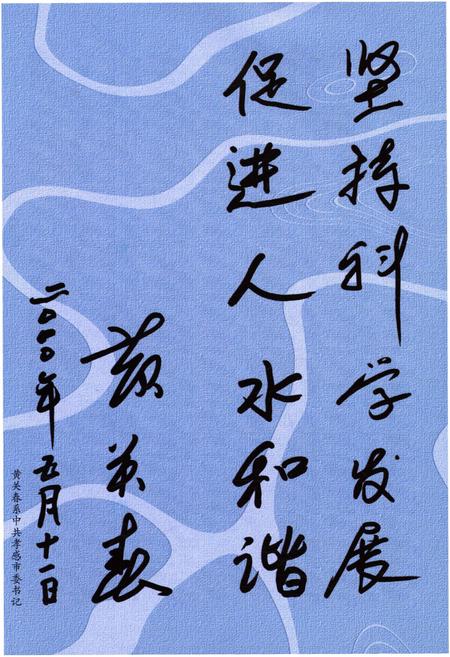 坚持科学发展
促进人水和谐
黄关春
二〇〇〇年五月十一日
黄关春系中共孝感市委书记